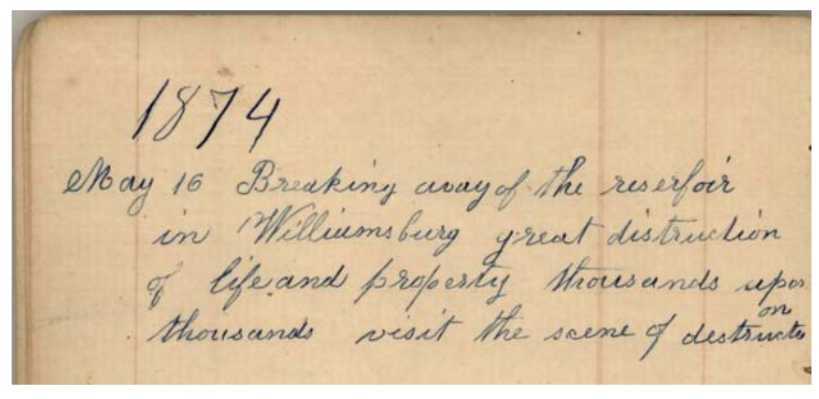 1874
May 16 Breaking away of the reserfoir
in Williamsburg great distruction
of life and property thousands upon
thousands visit the scene of destructi
on